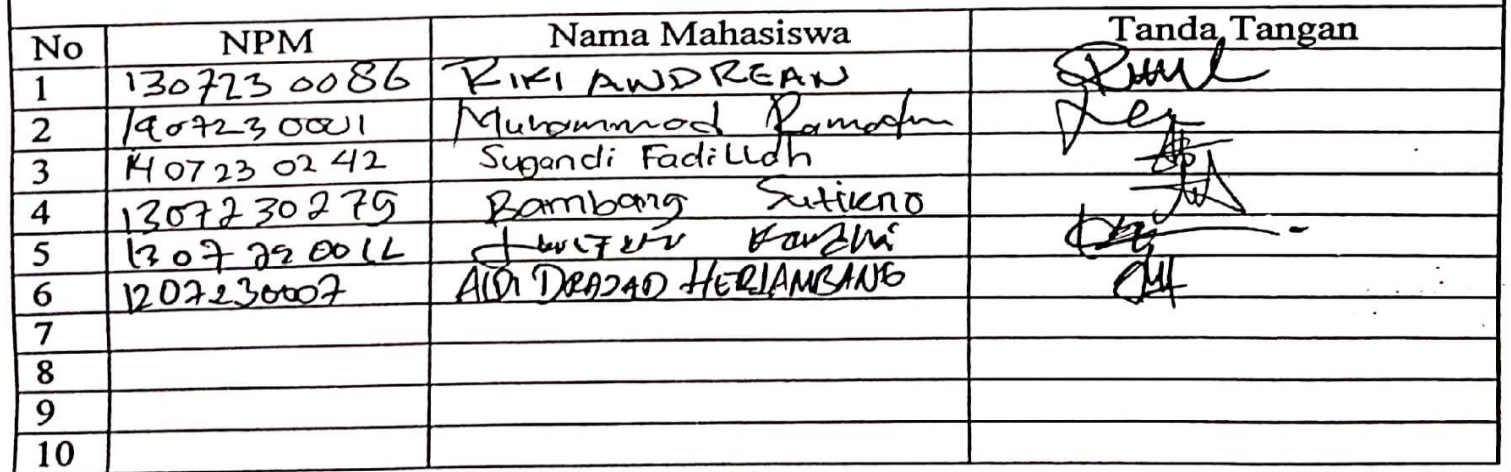 No NPM Nama Mahasiswa Tanda Tangan
1 1307230086 RIKI ANDREAN
2 1907230001 Muhammad Ramadhn
3 1407230242 Sugandi Fadillah
4 1307230279 Bambang Sutikno
5
6 1207230007 ALDI DRAJAD HERJAMBANG
7
8
9
10